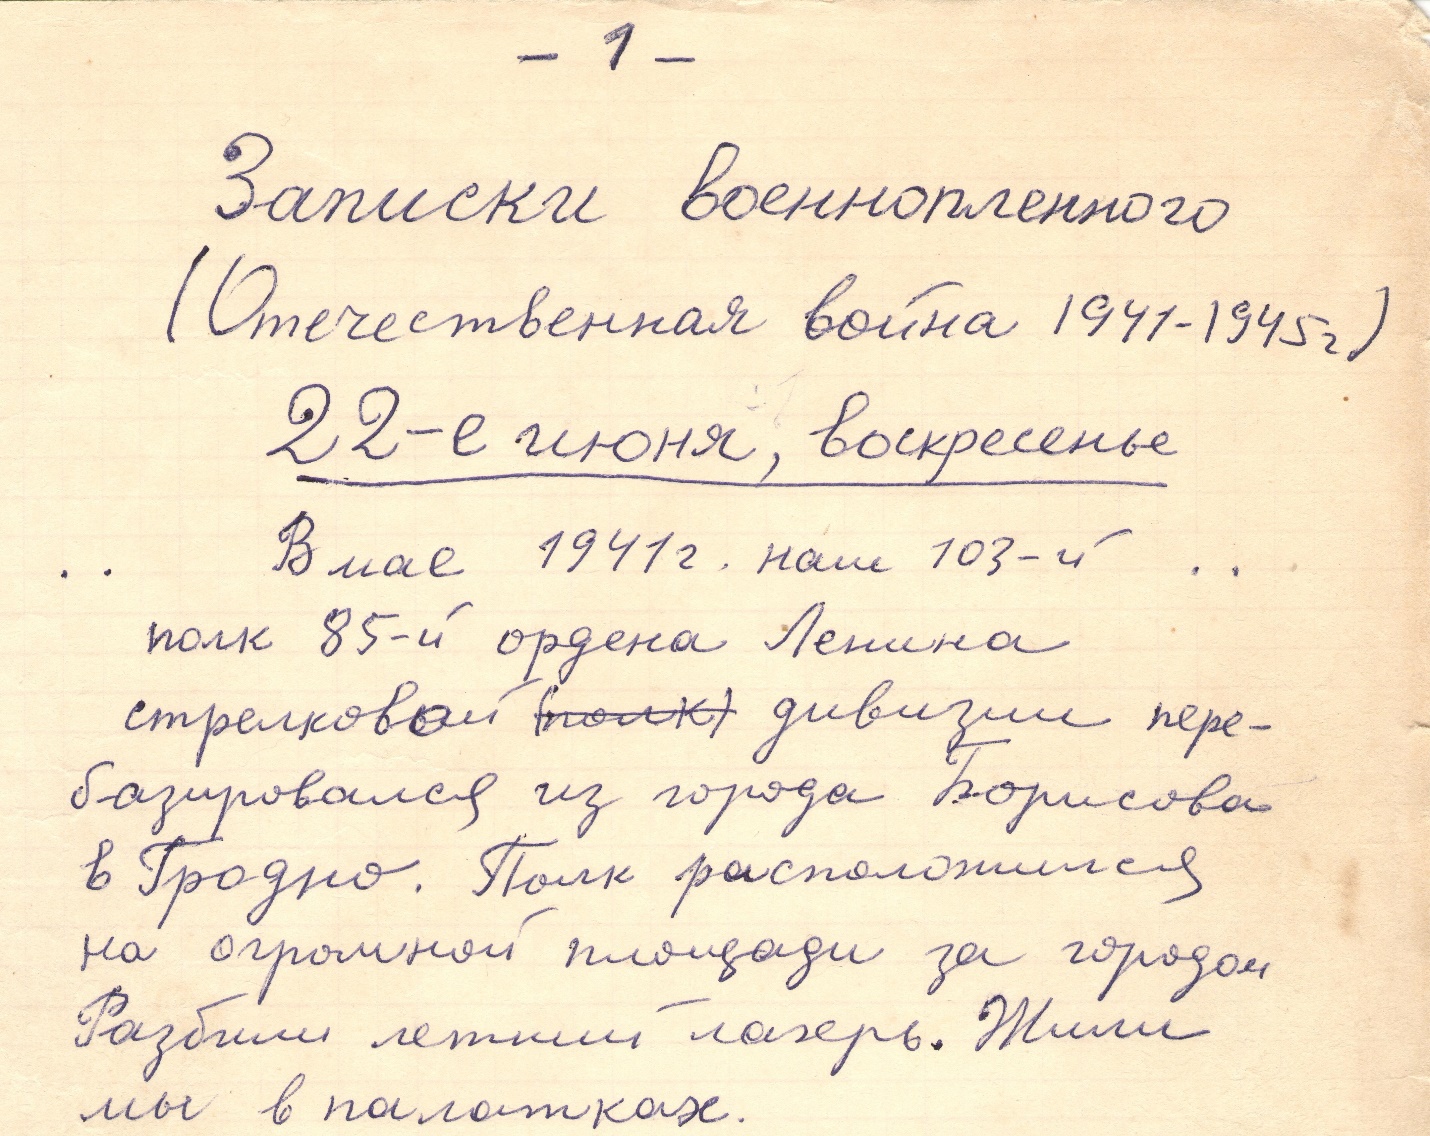 - 1 -
Записки военнопленного
(Отечественная война 1941-1945г)
22-е июня, воскресенье
.. В мае 1941г. наш 103-й ..
полк 85-й ордена Ленина
стрелковой (полк) дивизии пере-
базировался из города Борисова
в Гродно. Полк расположился
на огромной площади за городом
Разбили летний лагерь. Жили
мы в палатках.